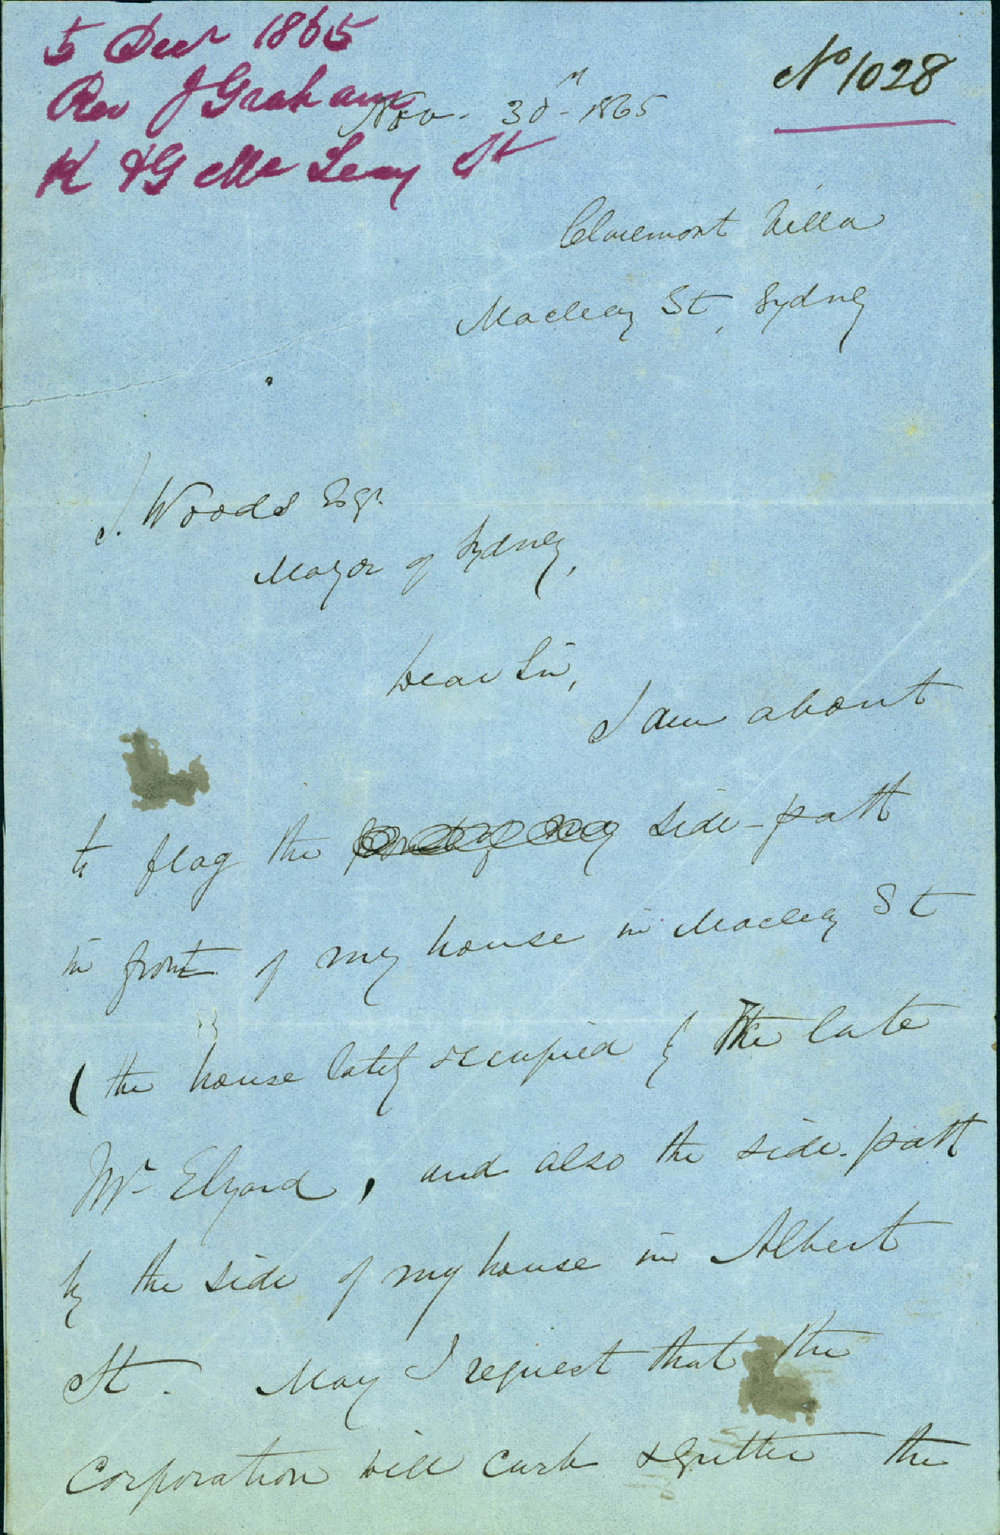 5 Decr 1865
Rev J Graham
K & G Mc Leay St
No 1028
Nov. 30th 1865
Claremont Villa
Macleay St, Sydney
J. Woods Esqr.
Mayor of Sydney,
Dear Sir,
I am about
to flag the side-path
in front of my house in Macleay St
(the house lately occupied by the late
Mr Elyard, and also the side-path
by the side of my house in Albert
St. May I request that the
Corporation will curb & gutter the